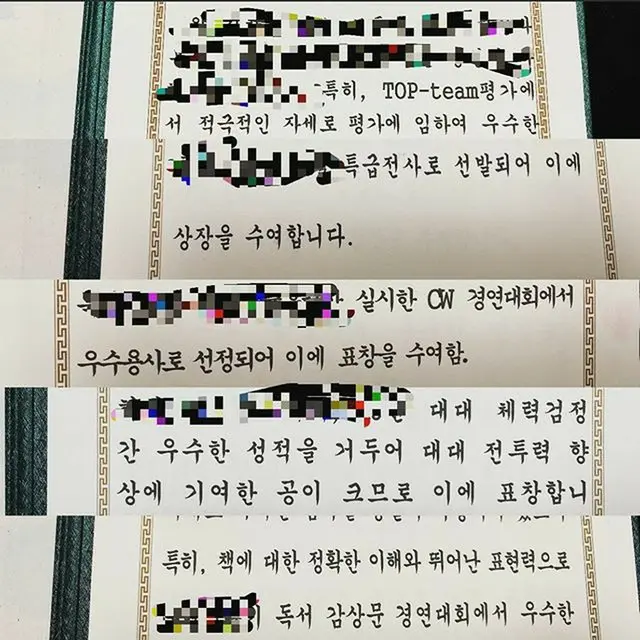 특히, TOP-team평가에
서 적극적인 자세로 평가에 임하여 우수한
특급전사로 선발되어 이에
상장을 수여합니다.
실시한 CW 경연대회에서
우수용사로 선정되어 이에 표창을 수여함.
대대 체력검정
간 우수한 성적을 거두어 대대 전투력 향
상에 기여한 공이 크므로 이에 표창합니
특히, 책에 대한 정확한 이해와 뛰어난 표현력으로
독서 감상문 경연대회에서 우수한